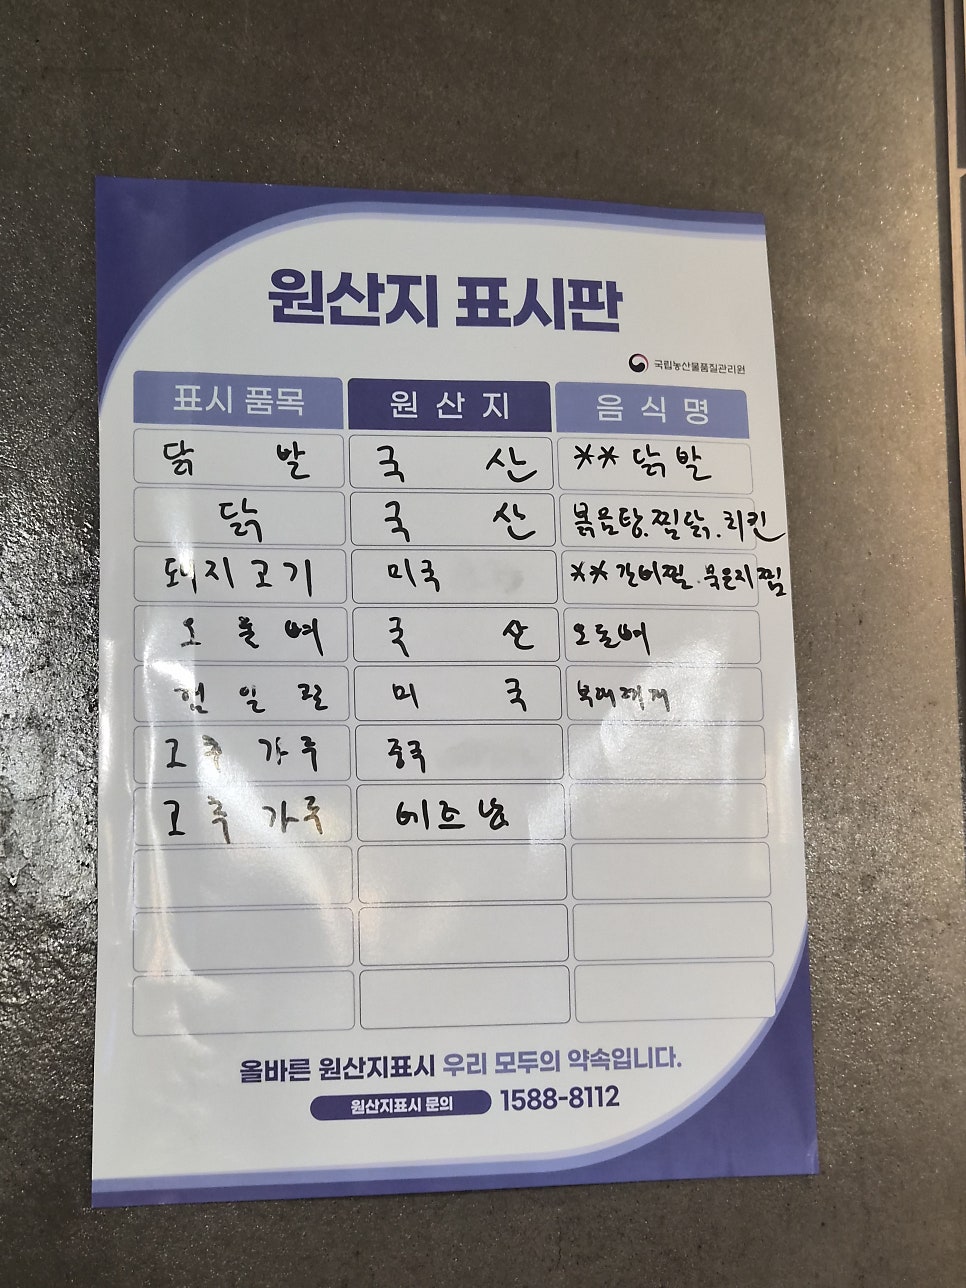 원산지 표시판
국립농산물품질관리원
표시 품목 원산지 음식명
닭 발 국 산 ** 닭발
닭 국 산 볶음탕.찜닭.치킨
돼지고기 미국 **갈비찜.묵은지찜
오돌뼈 국 산 오돌뼈
미 국
고추 가루 중국
고추 가루 베트남
올바른 원산지표시 우리 모두의 약속입니다.
원산지표시 문의 1588-8112